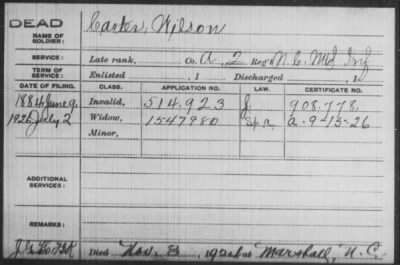 DEAD
NAME OF SOLDIER: Carter, Wilson
SERVICE: Late rank, Co. A, 2 Reg't N. C. Mtd Inf
TERM OF SERVICE: Enlisted , 1 Discharged , 1
DATE OF FILING. CLASS. APPLICATION NO. LAW. CERTIFICATE NO.
1884 June 9. Invalid, 514.923 J. 908.778.
1926 July 2 Widow, 1547980 a-9-15-26
Minor,
ADDITIONAL SERVICES:
REMARKS:
Died Nov. 3, 192 at Marshall, N. C.